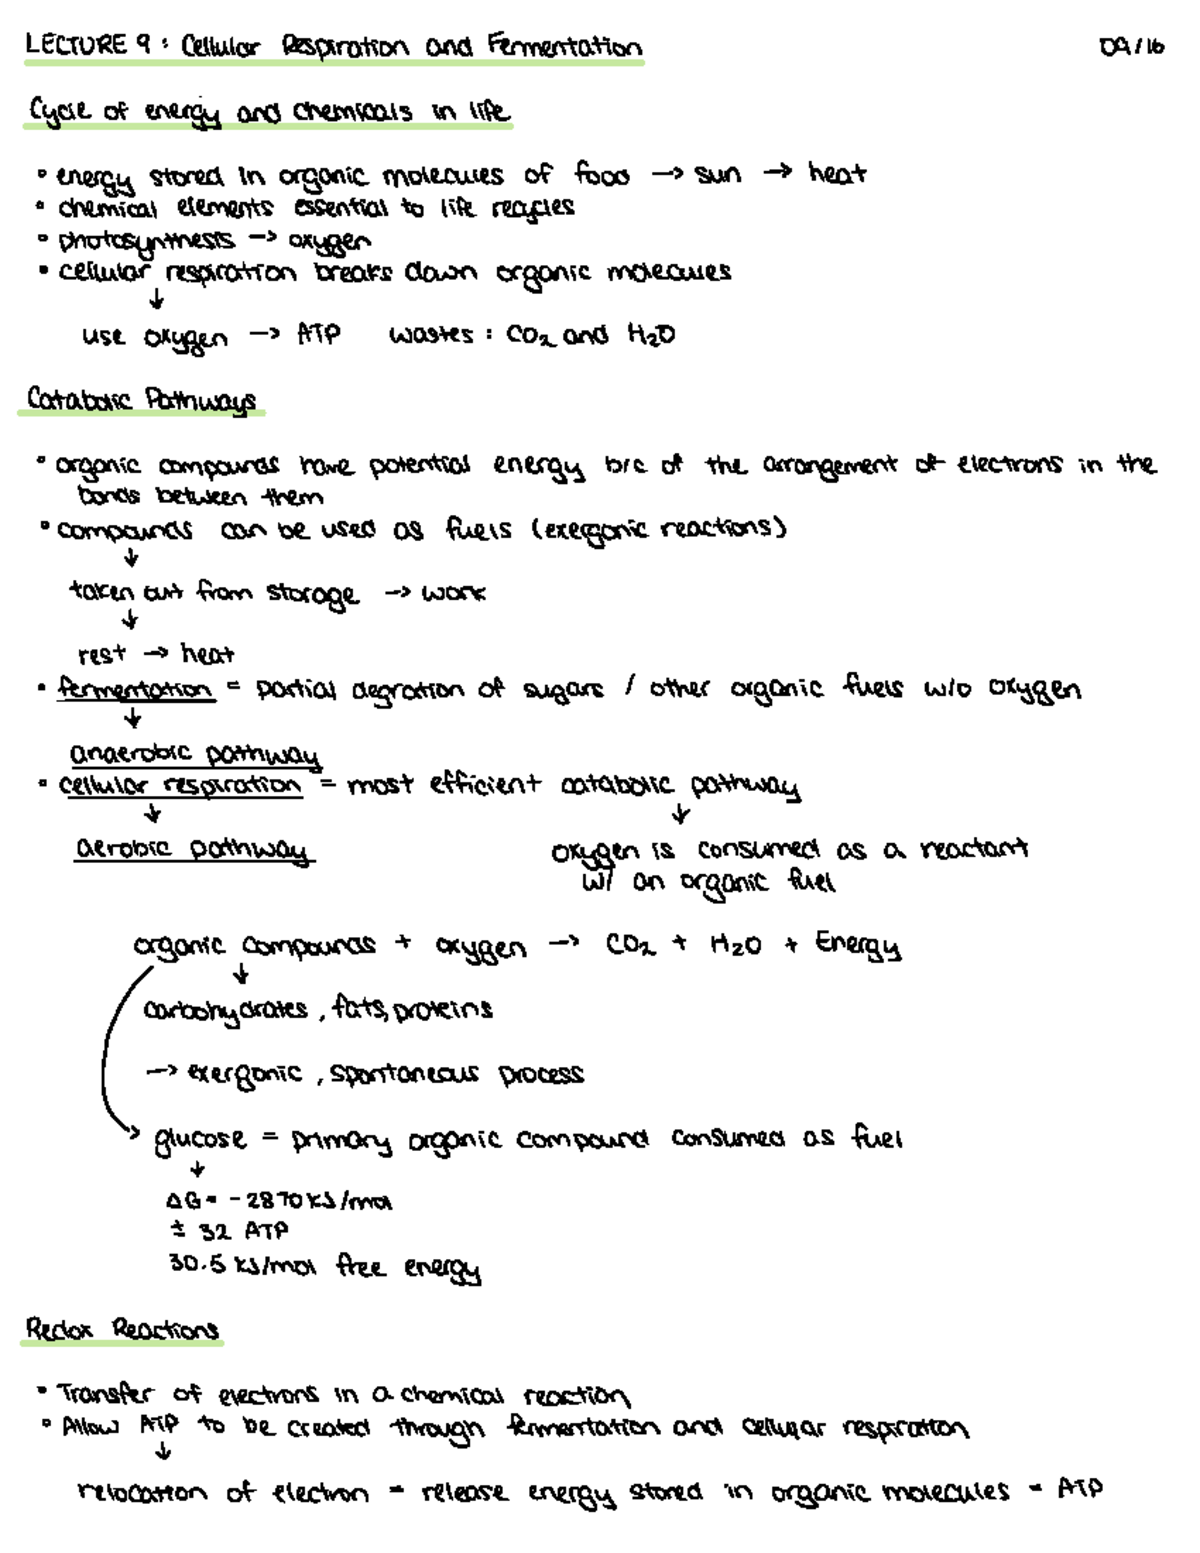 LECTURE 9: Cellular Respiration and Fermentation 09/16
Cycle of energy and chemicals in life
• energy stored in organic molecules of food → sun → heat
• chemical elements essential to life recycles
• photosynthesis → oxygen
• cellular respiration breaks down organic molecules
↓
use oxygen → ATP wastes: CO₂ and H₂O
Catabolic Pathways
• organic compounds have potential energy b/c of the arrangement of electrons in the
bonds between them
• compounds can be used as fuels (exergonic reactions)
↓
taken out from storage → work
↓
rest → heat
• fermentation = partial degration of sugars / other organic fuels w/o oxygen
↓
anaerobic pathway
• cellular respiration = most efficient catabolic pathway
↓ ↓
aerobic pathway oxygen is consumed as a reactant
w/ an organic fuel
organic compounds + oxygen → CO₂ + H₂O + Energy
↓
carbohydrates, fats, proteins
→ exergonic, spontaneous process
glucose = primary organic compound consumed as fuel
↓
ΔG = -2870 kJ/mol
± 32 ATP
30.5 kJ/mol free energy
Redox Reactions
• Transfer of electrons in a chemical reaction
• Allow ATP to be created through fermentation and cellular respiration
↓
relocation of electron = release energy stored in organic molecules = ATP